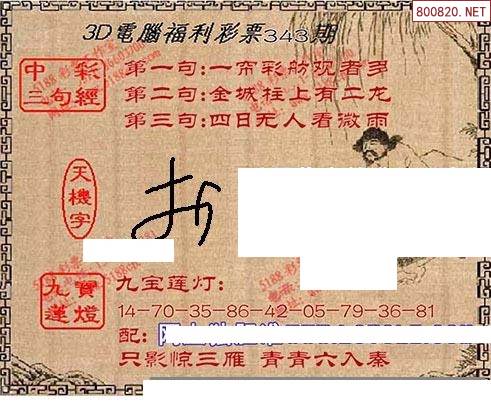 800820.NET
3D電腦福利彩票343期
中彩
三句經
第一句:一帘彩舫观者多
第二句:金城柱上有二龙
第三句:四日无人看微雨
天機字
折
九寶
蓮燈
九宝莲灯:
14-70-35-86-42-05-79-36-81
配:
只影惊三雁 青青六入秦